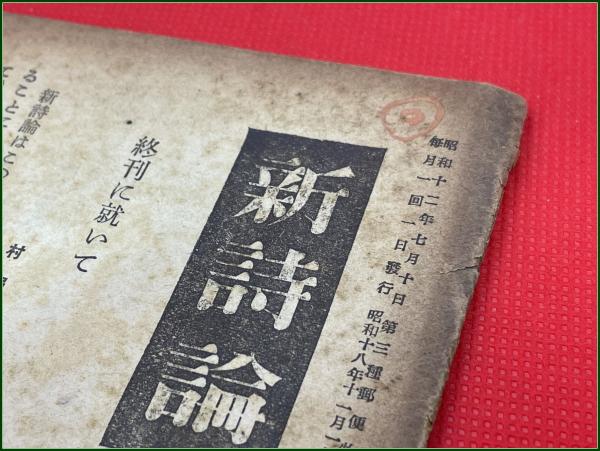 昭和十二年七月十日第三種郵便
毎月一回一日發行 昭和十八年十一月一
新詩論
終刊に就いて
村
新詩論はこの
ることに